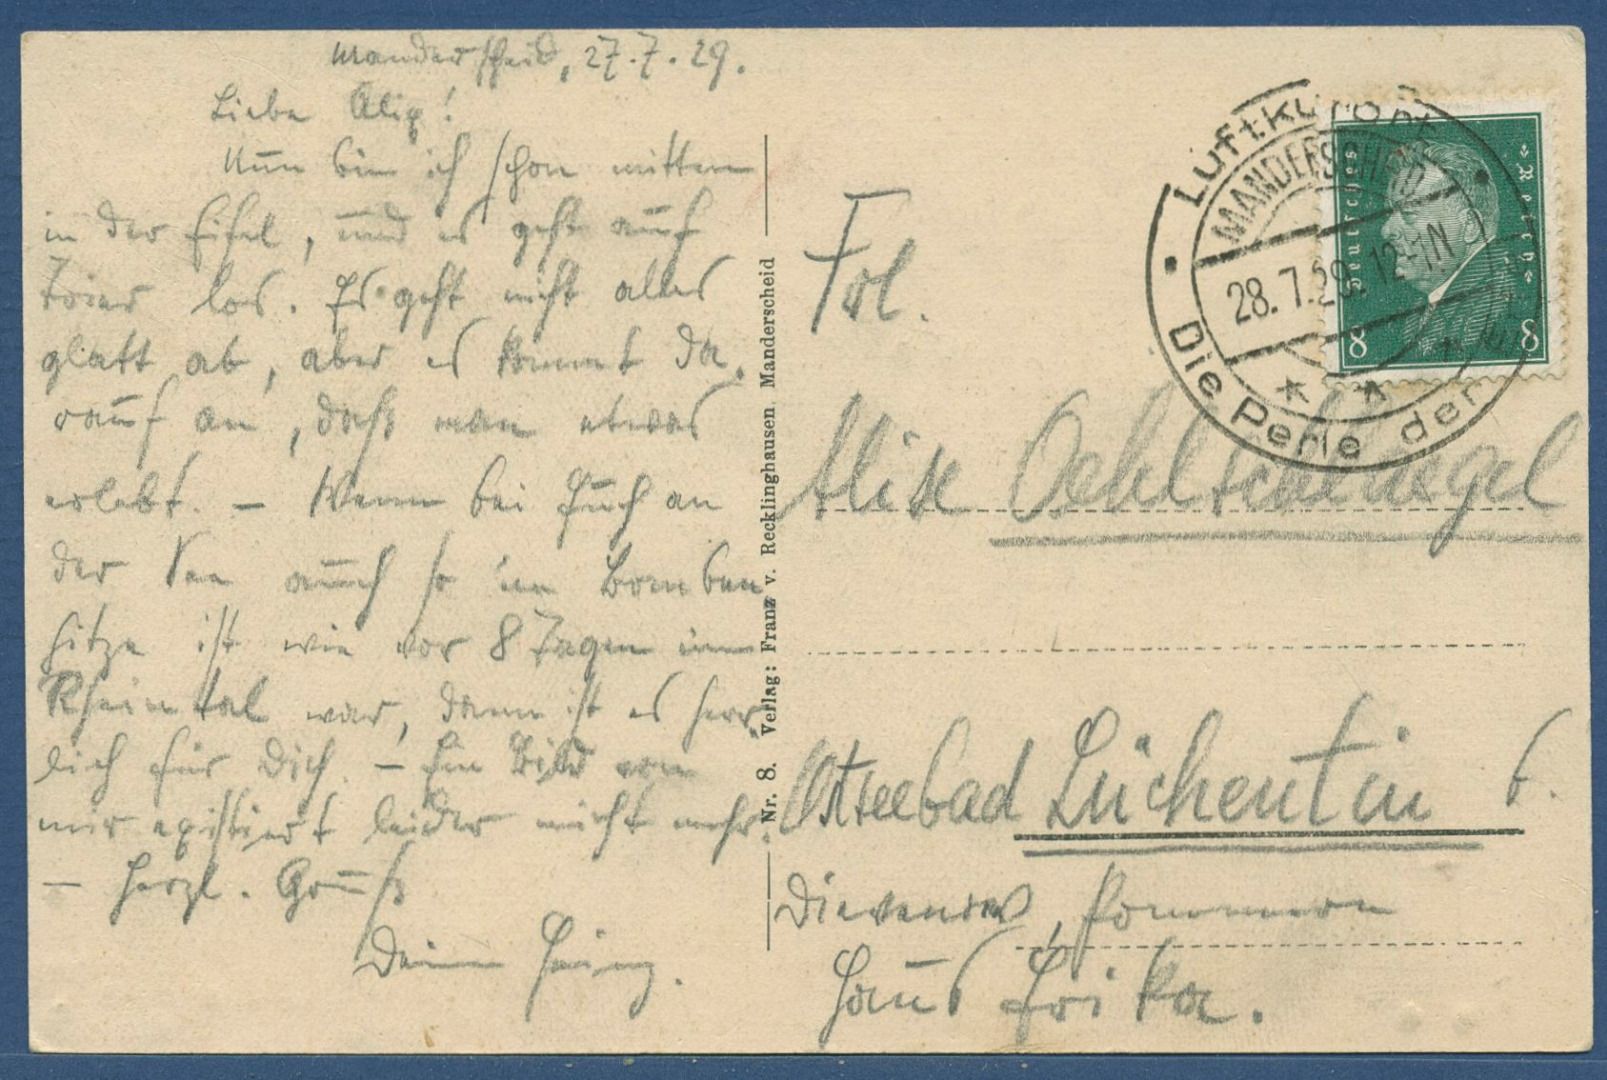 Manderscheid, 27.7.29.
Liebe Alix!
Nun bin ich schon mitten
in der Eifel, und es geht auf
Trier los. Es geht nicht alles
glatt ab, aber es kommt da-
rauf an, daß man etwas
erlebt. – Wenn bei Euch an
der See auch so 'ne Bomben
hitze ist wie vor 8 Tagen im
Rheintal war, dann ist es herr-
lich für Dich. – Ein Bild von
mir existiert leider nicht mehr.
– Herzl. Gruß
Dein Heinz.
Nr. 8. Verlag: Franz v. Recklinghausen, Manderscheid
Luftkurort
MANDERSCHEID
28.7.29. 12-1N
Die Perle der
Deutsches Reich
8 8
Frl.
Alise Oehlschlaegel
Ostseebad Lüchentin b.
Dievenow, Pommern
Haus Erika.